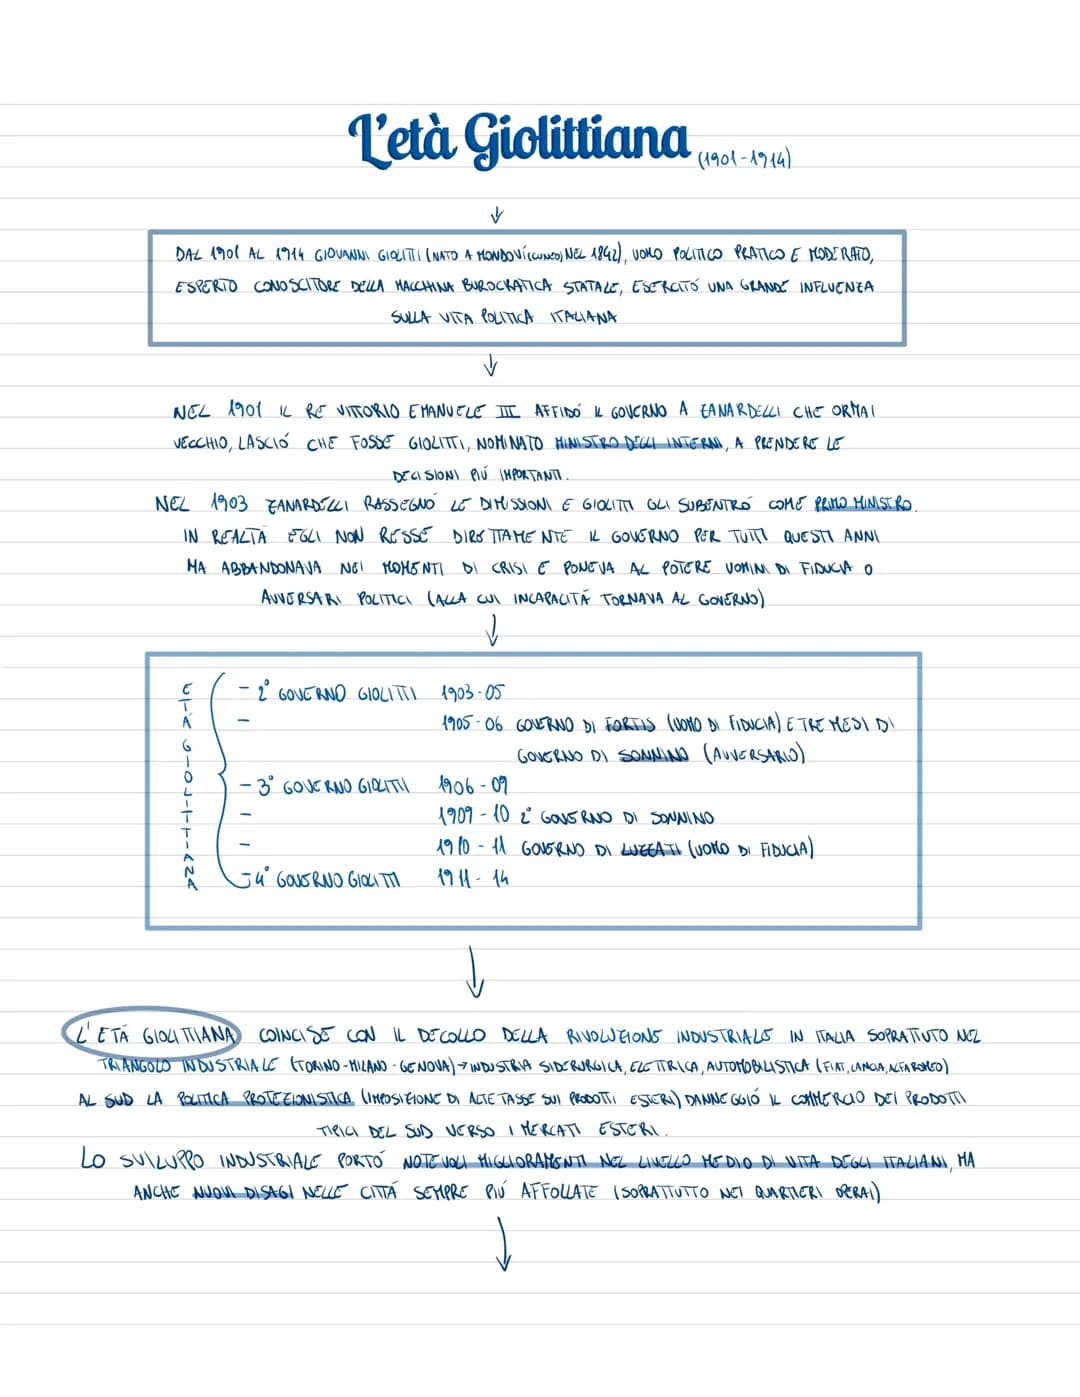 L'età Giolittiana (1901-1914)
DAL 1901 AL 1914 GIOVANNI GIOLITTI (NATO A MONDOVÍ (CUNEO) NEL 1842), UOMO POLITICO PRATICO E MODERATO,
ESPERTO CONOSCITORE DELLA MACCHINA BUROCRATICA STATALE, ESERCITÓ UNA GRANDE INFLUENZA
SULLA VITA POLITICA ITALIANA
NEL 1901 IL RE VITTORIO EMANUELE III AFFIDÓ IL GOVERNO A ZANARDELLI CHE ORMAI
VECCHIO, LASCIÓ CHE FOSSE GIOLITTI, NOMINATO MINISTRO DEGLI INTERNI, A PRENDERE LE
DECISIONI PIÚ IMPORTANTI.
NEL 1903 ZANARDELLI RASSEGNÓ LE DIMISSIONI E GIOLITTI GLI SUBENTRÓ COME PRIMO MINISTRO.
IN REALTÀ EGLI NON RESSE DIRETTAMENTE IL GOVERNO PER TUTTI QUESTI ANNI
MA ABBANDONAVA NEI MOMENTI DI CRISI E PONEVA AL POTERE UOMINI DI FIDUCIA O
AVVERSARI POLITICI (ALLA CUI INCAPACITÁ TORNAVA AL GOVERNO)
ETÁ GIOLITTIANA
- 2° GOVERNO GIOLITTI 1903-05
- 1905-06 GOVERNO DI FORTIS (UOMO DI FIDUCIA) E TRE MESI DI
GOVERNO DI SONNINO (AVVERSARIO)
- 3° GOVERNO GIOLITTI 1906-09
- 1909-10 2° GOVERNO DI SONNINO
- 1910-11 GOVERNO DI LUZZATI (UOMO DI FIDUCIA)
- 4° GOVERNO GIOLITTI 1911-14
L'ETÁ GIOLITTIANA COINCISE CON IL DECOLLO DELLA RIVOLUZIONE INDUSTRIALE IN ITALIA SOPRATTUTO NEL
TRIANGOLO INDUSTRIALE (TORINO-MILANO-GENOVA)→INDUSTRIA SIDERURGICA, ELETTRICA, AUTOMOBILISTICA (FIAT, LANCIA, ALFA ROMEO)
AL SUD LA POLITICA PROTEZIONISTICA (IMPOSIZIONE DI ALTE TASSE SUI PRODOTTI ESTERI) DANNEGGIÓ IL COMMERCIO DEI PRODOTTI
TIPICI DEL SUD VERSO I MERCATI ESTERI.
LO SVILUPPO INDUSTRIALE PORTÓ NOTEVOLI MIGLIORAMENTI NEL LIVELLO MEDIO DI VITA DEGLI ITALIANI, MA
ANCHE NUOVI DISAGI NELLE CITTÁ SEMPRE PIÚ AFFOLLATE (SOPRATTUTTO NEI QUARTIERI OPERAI)